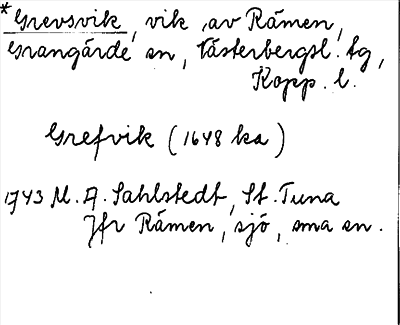 *Grevsvik, vik av Rämen,
Grangärde sn, Västerbergsl. tg,
Kopp. l.
Grefvik (1648 ka)
1943 M. A. Sahlstedt, St. Tuna
Jfr Rämen, sjö, sma sn.